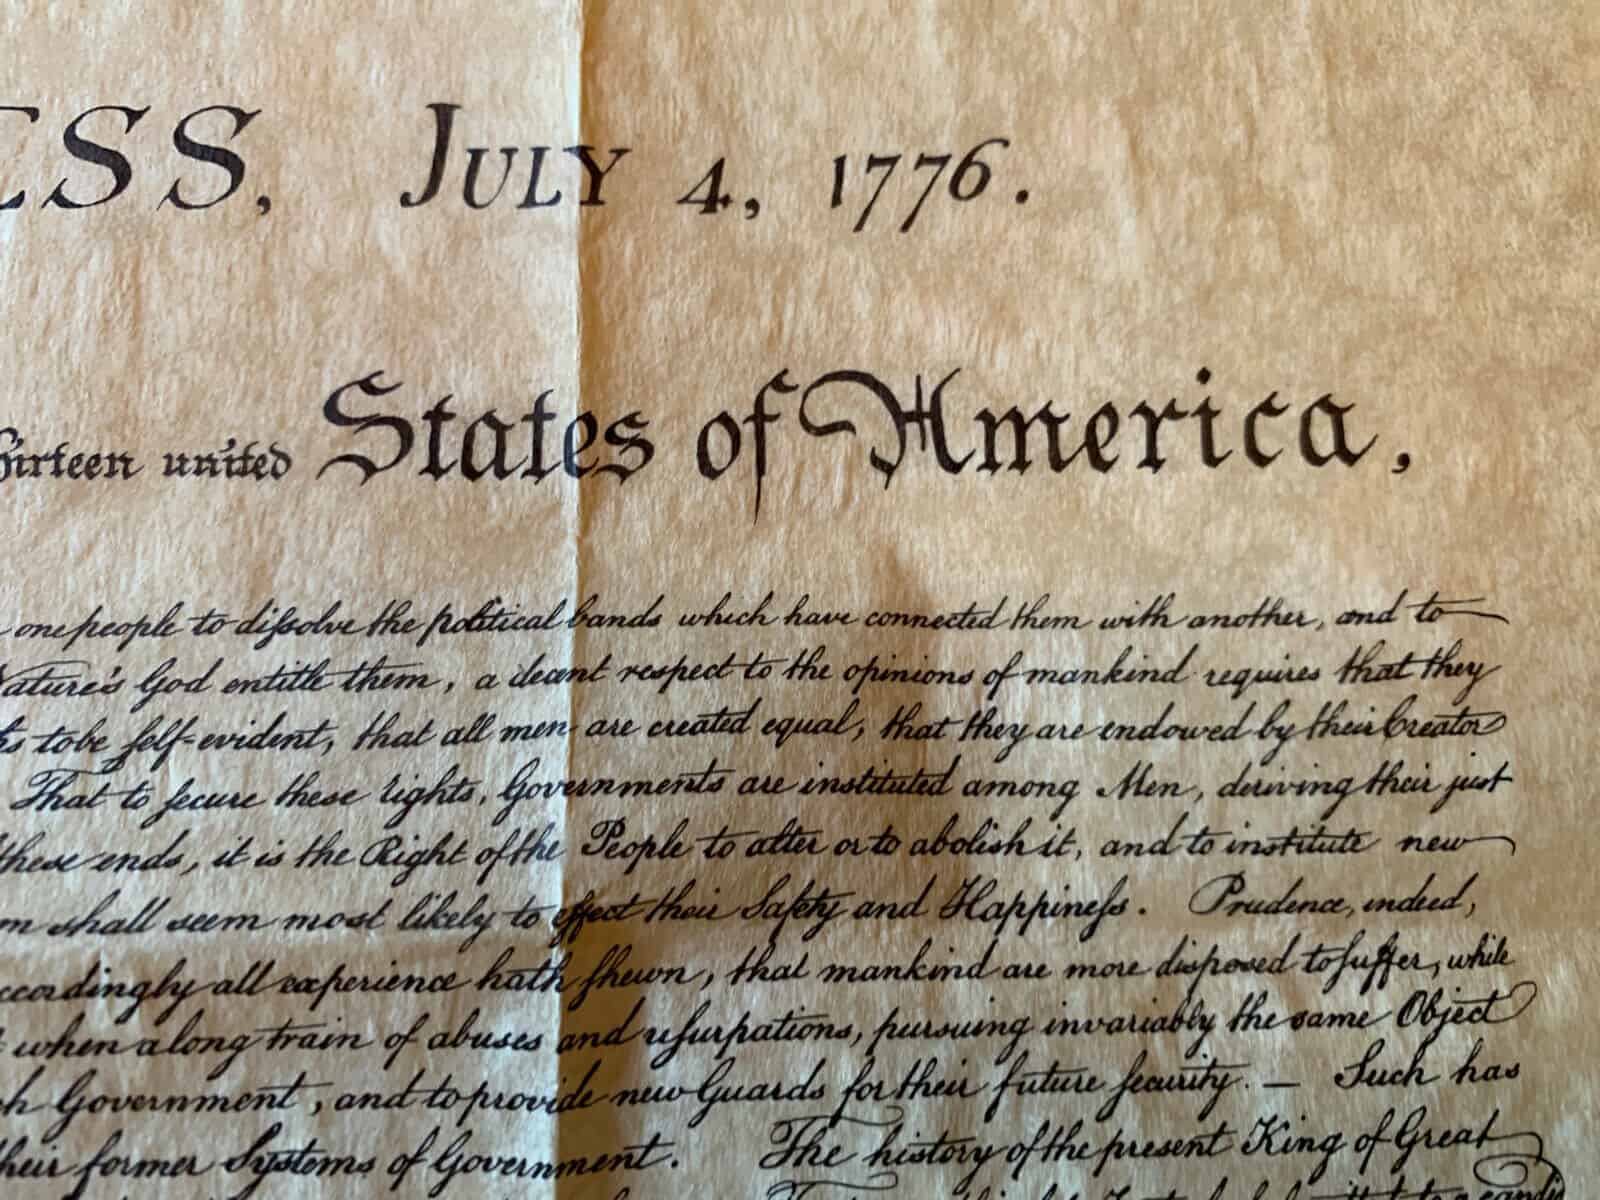 ESS, JULY 4, 1776.
hirteen united States of America.
one people to dissolve the political bands which have connected them with another, and to
Nature's God entitle them, a decent respect to the opinions of mankind requires that they
to be self-evident, that all men are created equal, that they are endowed by their Creator
That to secure these rights, Governments are instituted among Men, deriving their just
these ends, it is the Right of the People to alter or to abolish it, and to institute new
m shall seem most likely to effect their Safety and Happiness. Prudence, indeed,
ccordingly all experience hath shewn, that mankind are more disposed to suffer, while
when a long train of abuses and usurpations, pursuing invariably the same Object
ch Government, and to provide new Guards for their future security. — Such has
their former Systems of Government. The history of the present King of Great